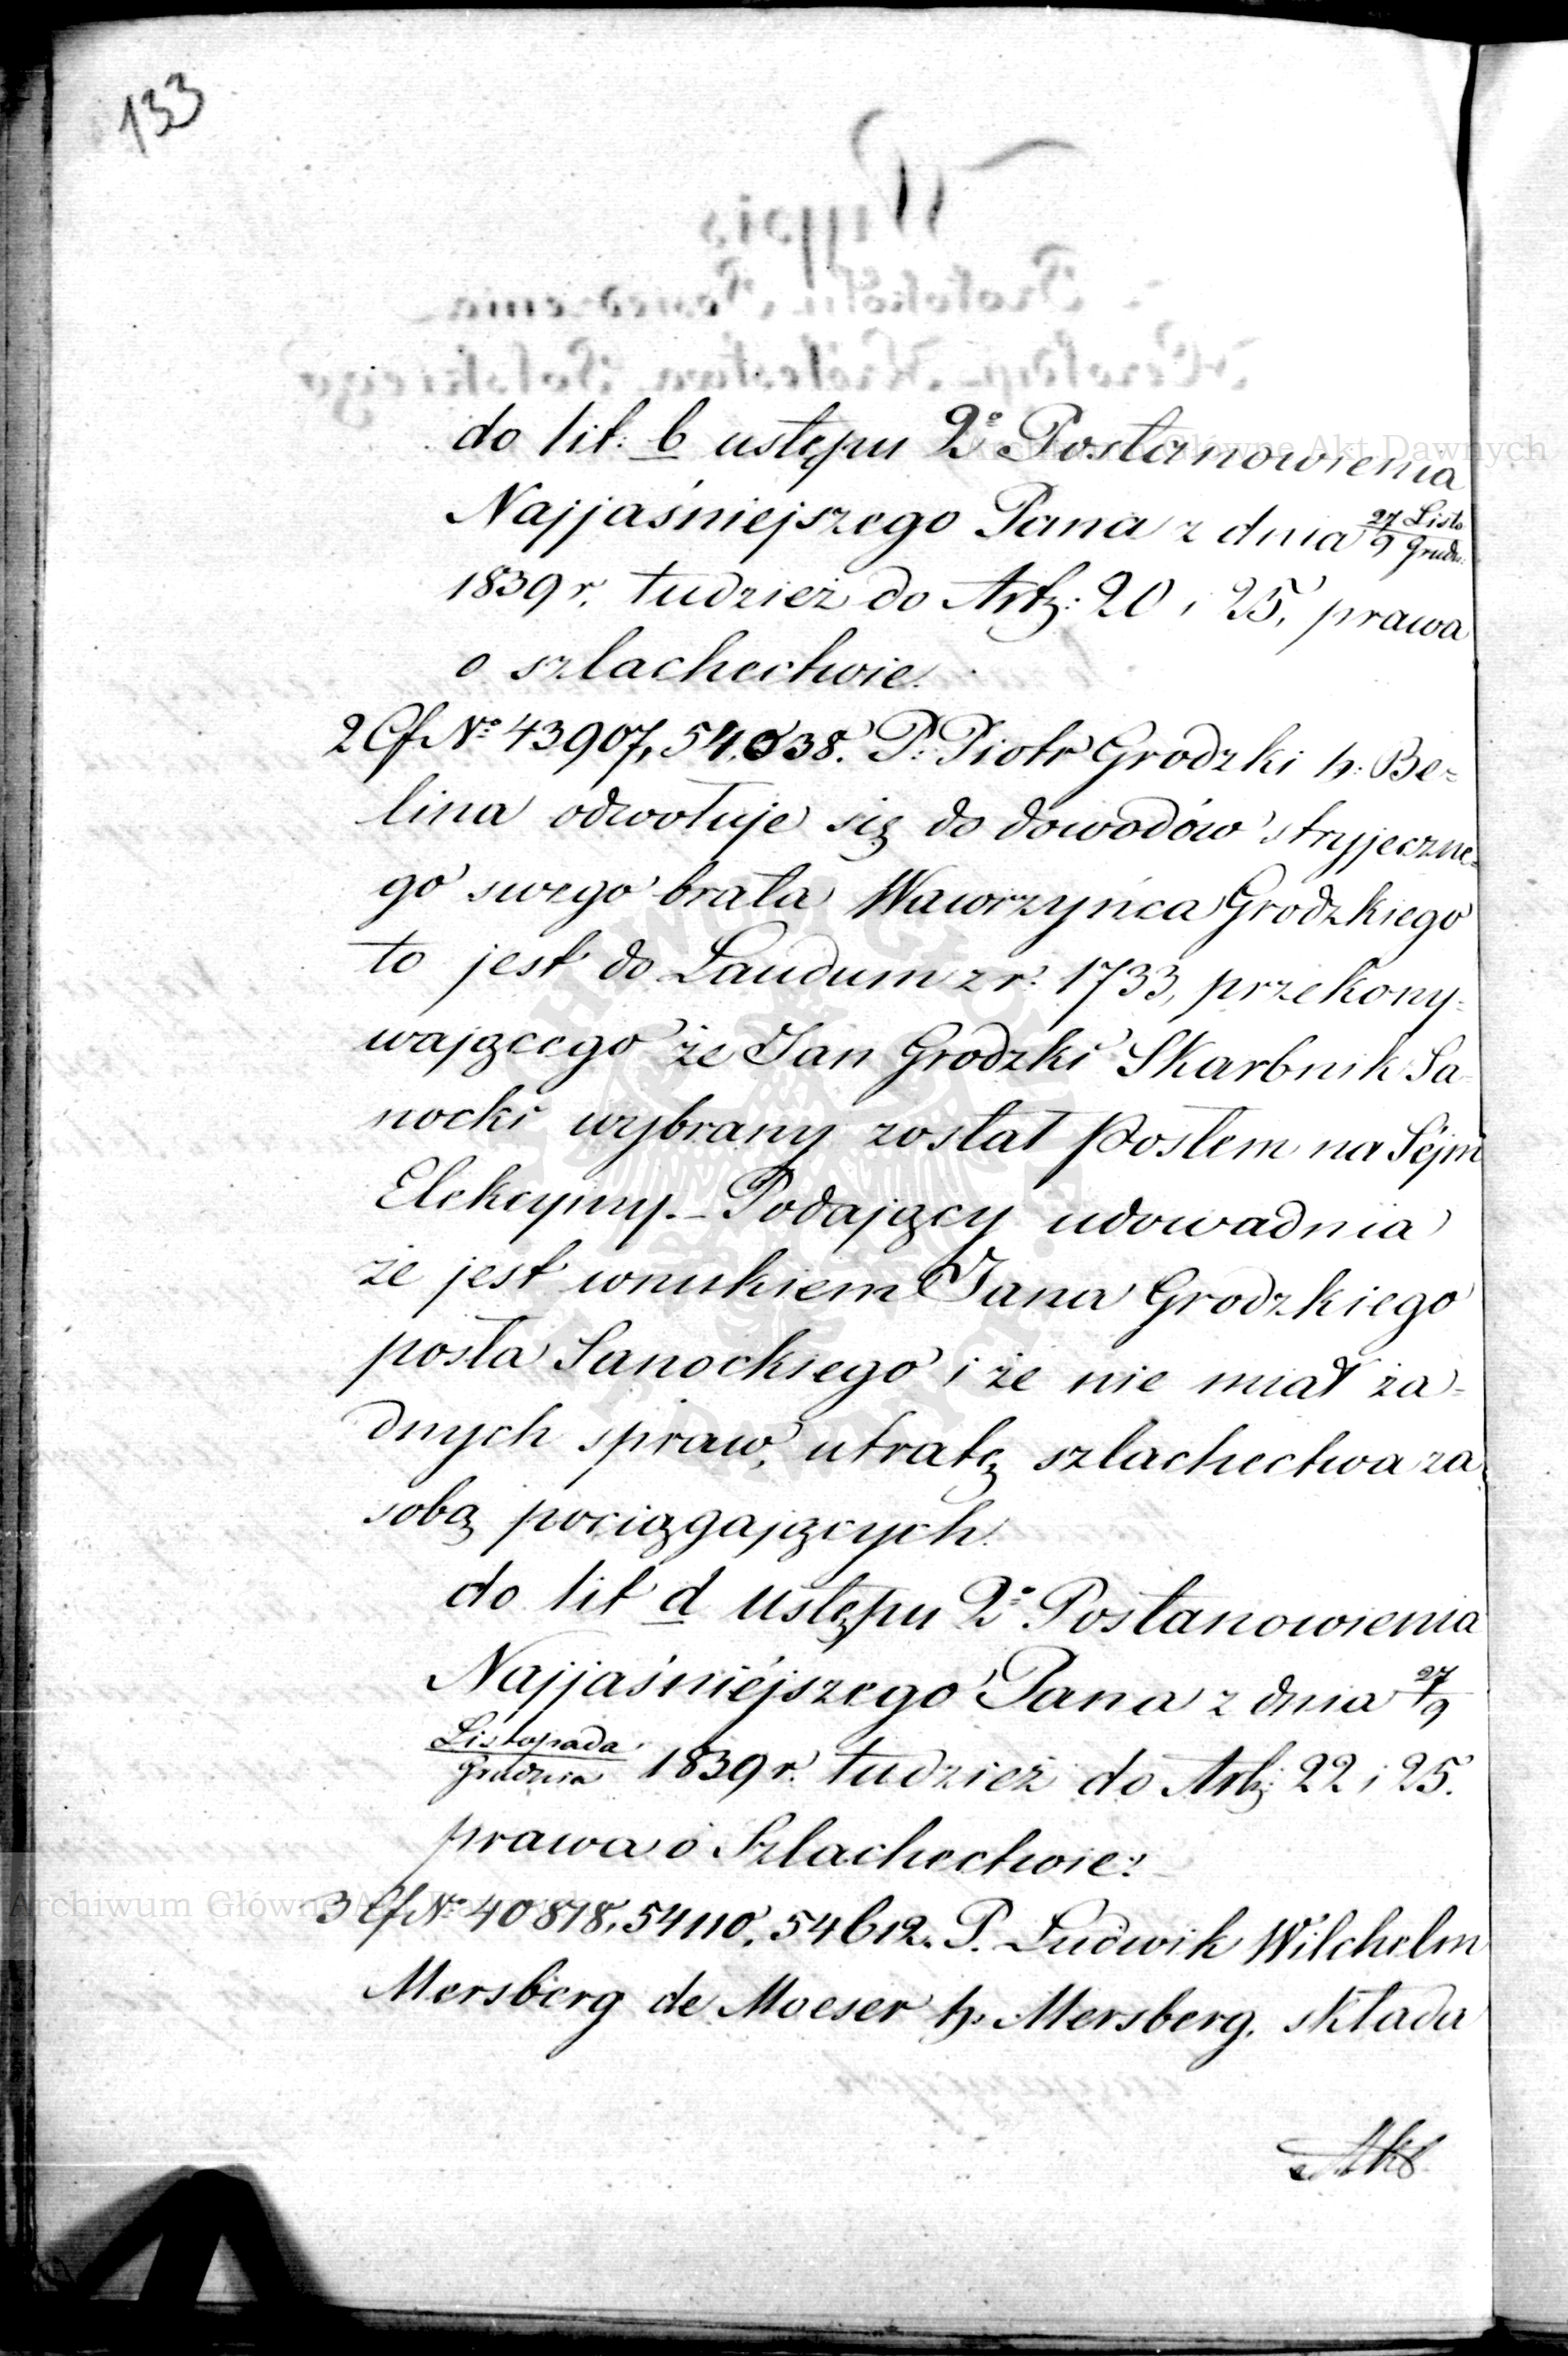 133
do lit: b ustępu 2º Postanowienia
Najjaśniejszego Pana z dnia 27 Listo. / 9 Grudn.
1839 r. tudzież do Artę: 20 i 25, prawa
o szlachectwie.
2 Cf Nº 43907, 54,038. P. Piotr Grodzki h: Be=
lina odwołuje się do dowodów stryjeczne=
go swego brata Wawrzyńca Grodzkiego
to jest do Laudum z r. 1733, przekony=
wającego że Jan Grodzki Skarbnik Sa
nocki wybrany został Posłem na Sejm
Elekcyjny. – Podający udowadnia
że jest wnukiem Jana Grodzkiego
posła Sanockiego i że nie miał ża=
dnych spraw, utratę szlachectwa za
sobą pociągających.
do lit d ustępu 2º Postanowienia
Najjaśniejszego Pana z dnia 27/9
Listopada / Grudnia 1839 r. tudzież do Artę: 22 i 25.
prawa o Szlachectwie:
3 Cf Nº 40878, 54110, 54612. P. Ludwik Wilchelm
Mersberg de Moeser h. Mersberg. składa
Archiwum Główne Akt Dawnych